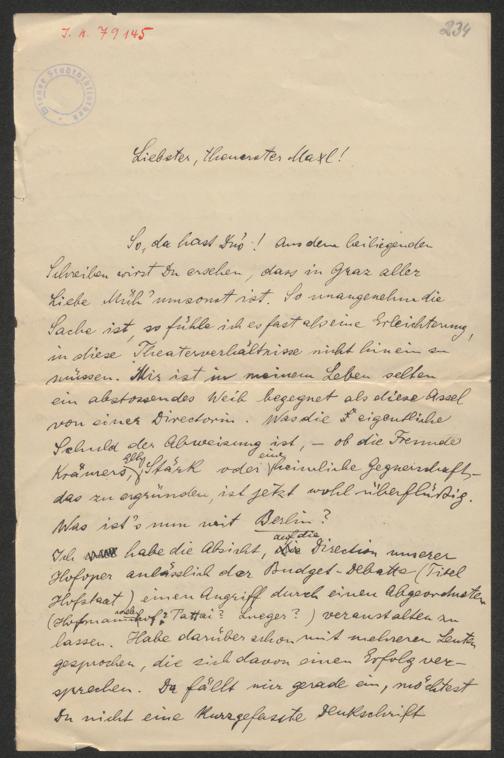 I. N. 79145
234
Wiener Stadtbibliothek
Liebster, theuerster Maxl!
So, da hast Du's! Aus dem beiliegenden
Schreiben wirst Du ersehen, dass in Graz aller
Liebe Müh' umsonst ist. So unangenehm die
Sache ist, so fühle ich es fast als eine Erleichterung,
in diese Theaterverhältnisse nicht hinein zu
müssen. Mir ist in meinem Leben selten
ein abstossendes Weib begegnet als diese Assel
von einer Directorin. Was die eigentliche
Schuld der Abweisung ist, – ob die Freunde
Krämers, Stärk oder eine heimliche Gegnerschaft –
das zu ergründen, ist jetzt wohl überflüßig.
Was ist's nun mit Berlin?
Ich habe die Absicht, auf die Direction unserer
Hofoper anlässlich der Budget-Debatte (Titel
Hofstaat) einen Angriff durch einen Abgeordneten
(Hofmann ? Pattai? Lueger?) veranstalten zu
lassen. Habe darüber schon mit mehreren Leuten
gesprochen, die sich davon einen Erfolg ver-
sprechen. Da fällt mir gerade ein, möchtest
Du nicht eine kurzgefasste Denkschrift